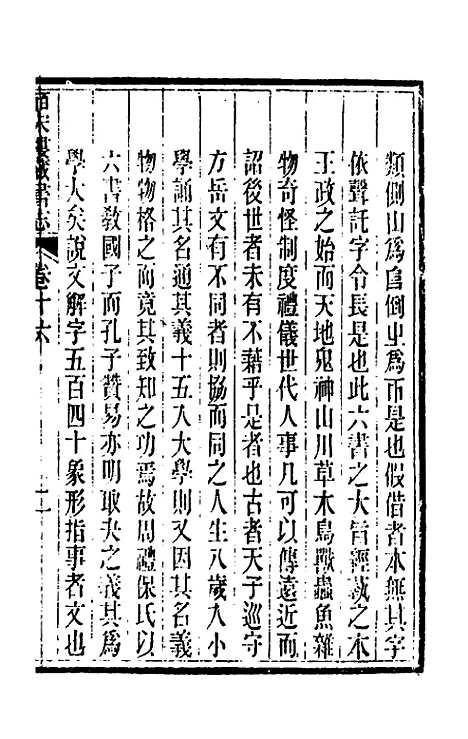 類側山爲𨸏倒㞢爲帀是也假借者本無其字
依聲託字令長是也此六書之大旨經蓺之本
王政之始而天地鬼神山川草木鳥獸蟲魚雜
物奇怪制度禮儀世代人事凡可以傳遠近而
詔後世者未有不藉乎是者也古者天子巡守
方岳文有不同者則協而同之人生八歲入小
學誦其名通其義十五入大學則又因其名義
物物格之而竟其致知之功焉故周禮保氏以
六書敎國子而孔子贊易亦明取夬之義其爲
學大矣說文解字五百四十象形指事者文也
皕宋樓藏書志 卷十六